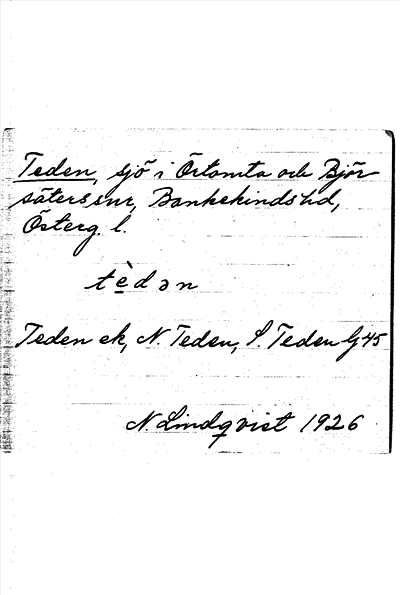 Teden, sjö i Örtomta och Björ
säters snr, Bankekinds hd,
Österg. l.
tèdən
Teden ek, N. Teden, S. Teden Gj 45
N. Lindqvist 1926